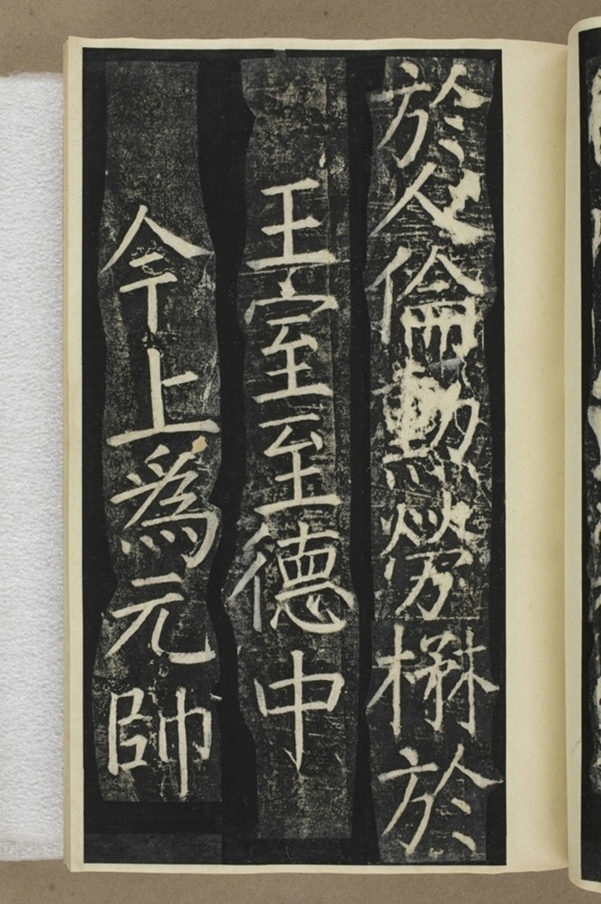 於人倫勳勞楙於
王室至德中
今上為元帥